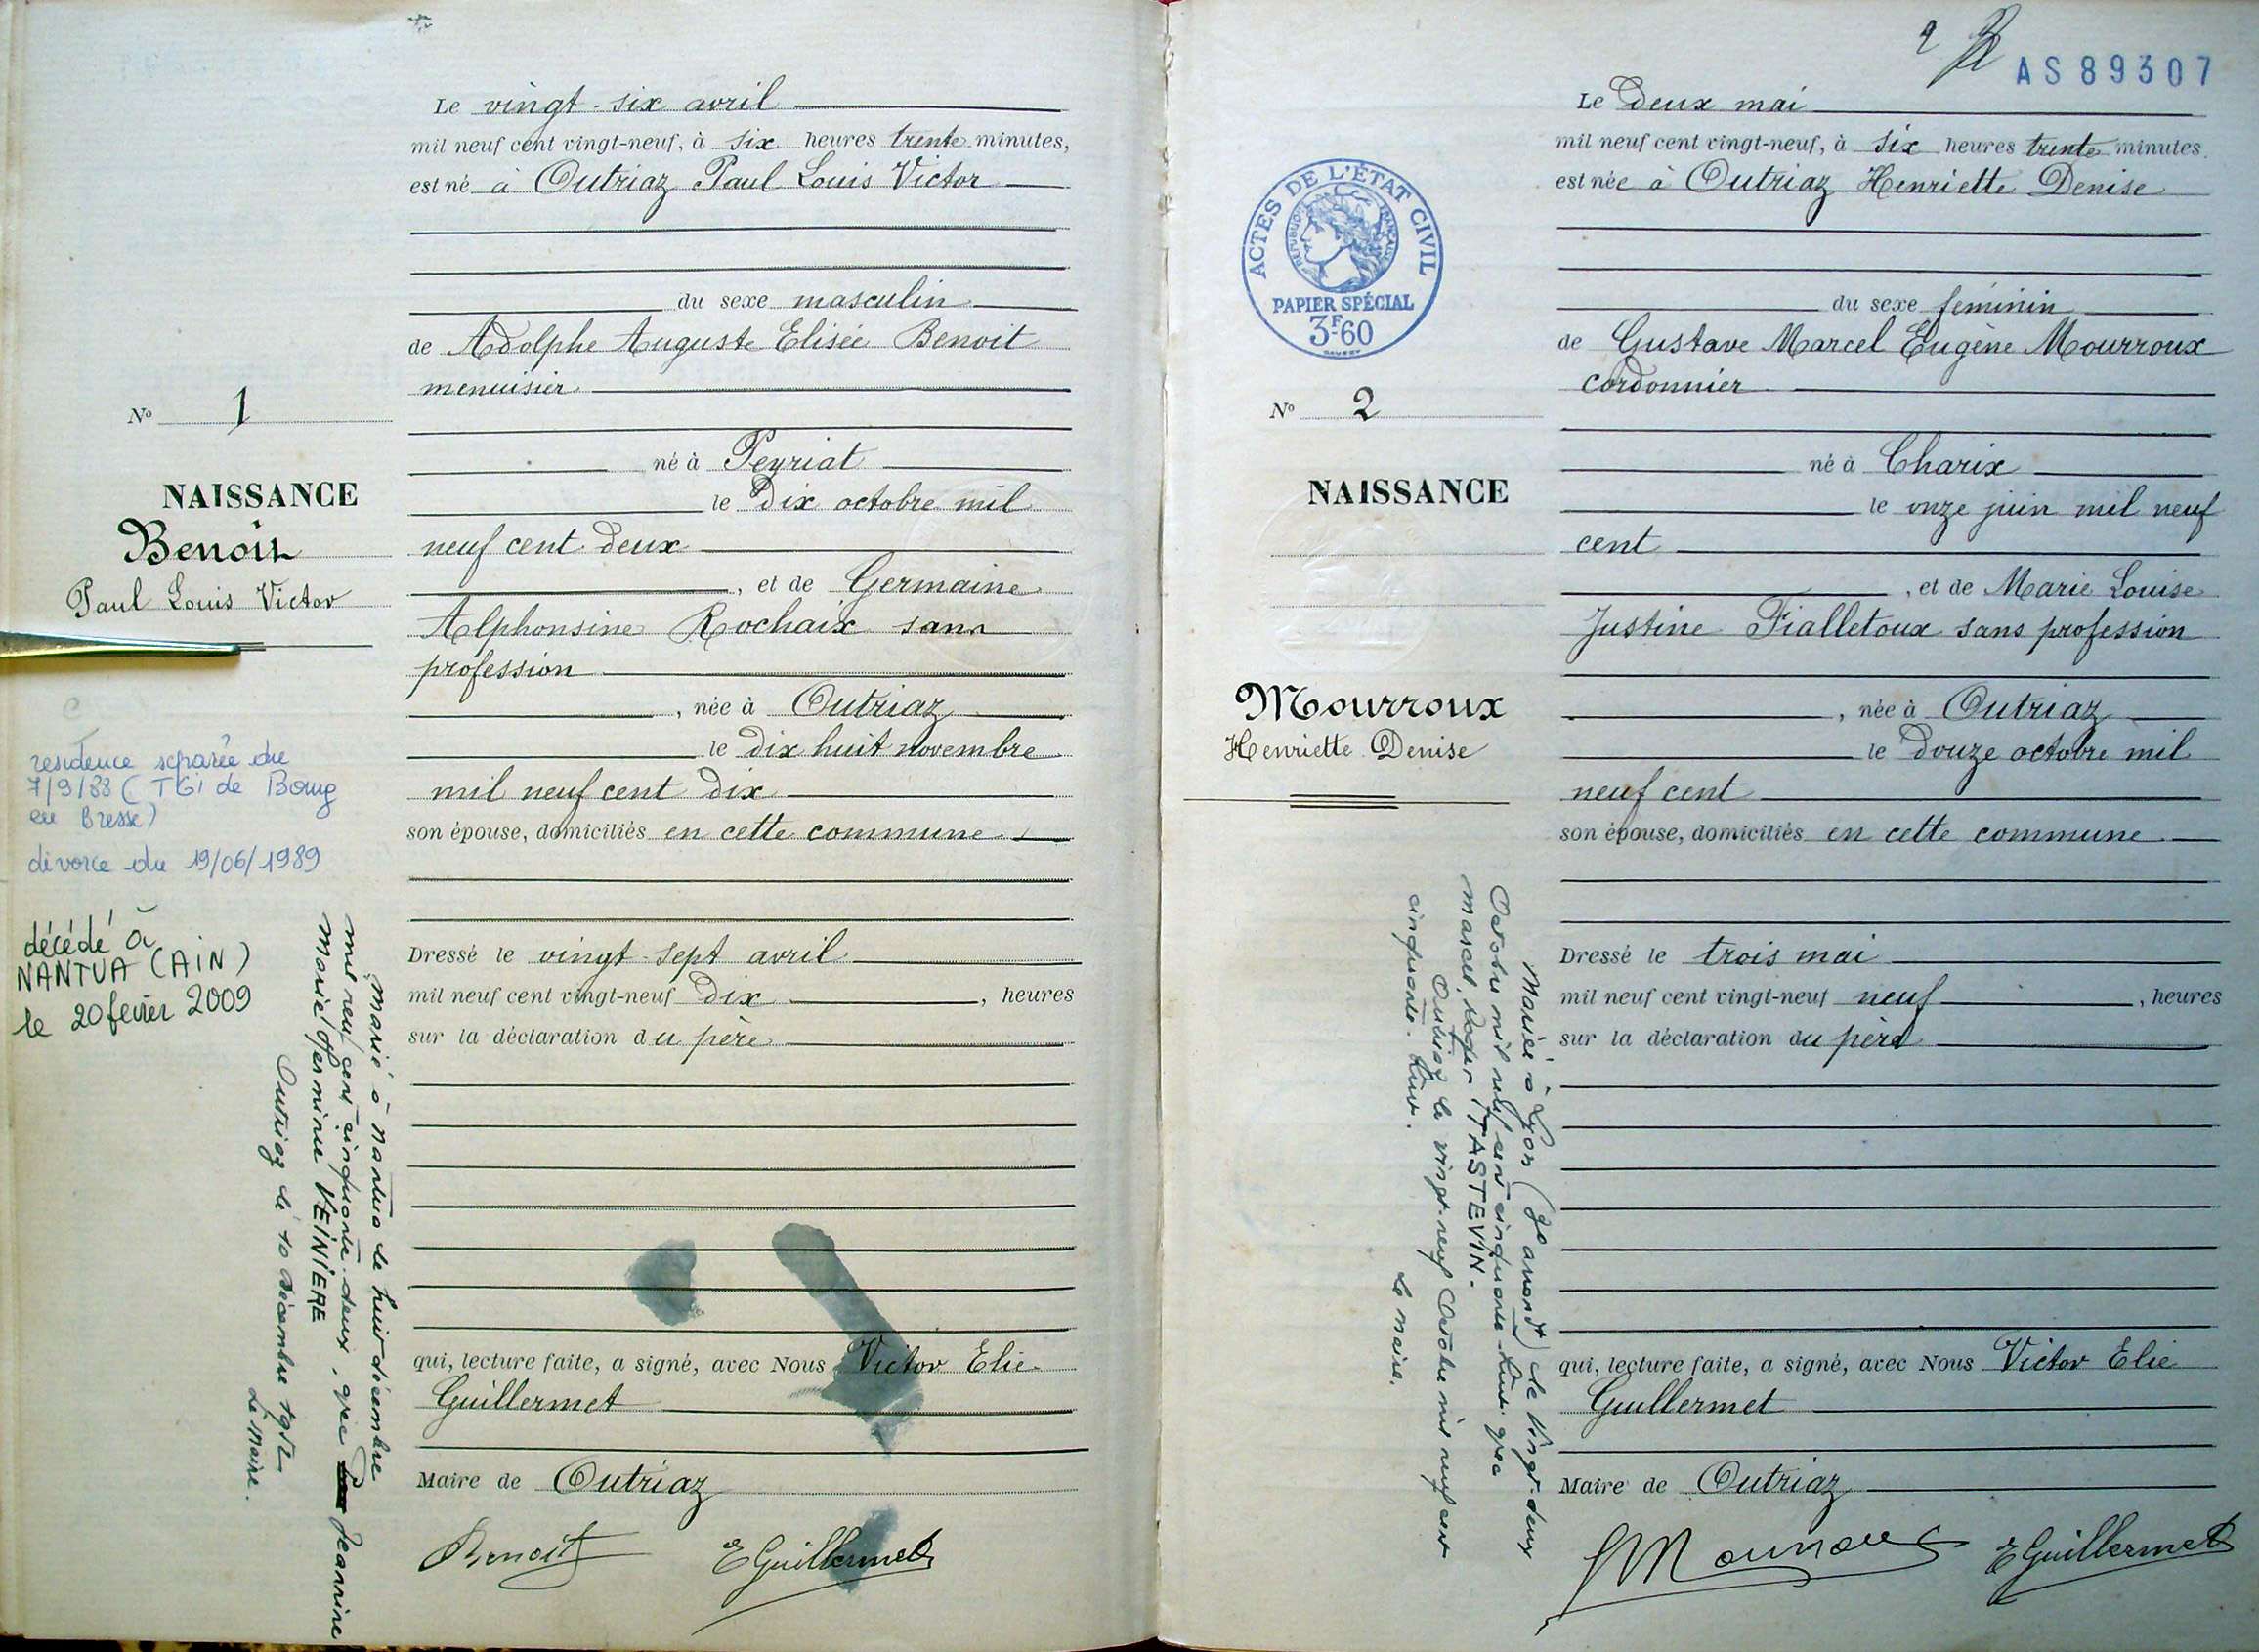 Le vingt-six avril
mil neuf cent vingt-neuf, à six heures trente minutes,
est né à Outriaz Paul Louis Victor
du sexe masculin
de Adolphe Auguste Elisée Benoit
menuisier
né à Peyriat
le dix octobre mil
neuf cent deux
, et de Germaine
Alphonsine Rochaix sans
profession
, née à Outriaz
le dix huit novembre
mil neuf cent dix
son épouse, domiciliés en cette commune
Dressé le vingt-sept avril
mil neuf cent vingt-neuf dix, heures
sur la déclaration du père
qui, lecture faite, a signé, avec Nous Victor Elie
Guillermet
Maire de Outriaz
Benoit
EGuillermet
No 1
NAISSANCE
Benoit
Paul Louis Victor
residence separée du
7/9/88 (TGi de Bourg
en Bresse)
divorce du 19/06/1989
décédé à
NANTUA (AiN)
le 20 fevrier 2009
Marié à Nantua le huit décembre
mil neuf cent cinquante-deux, avec Jeannine
Marie Hermine VEINIERE
Outriaz le 10 décembre 1952
Le Maire.
2
AS89307
Le Deux mai
mil neuf cent vingt-neuf, à six heures trente minutes,
est née à Outriaz Henriette Denise
du sexe féminin
de Gustave Marcel Eugène Mourroux
cordonnier
né à Charix
le onze juin mil neuf
cent
, et de Marie Louise
Justine Fialletoux sans profession
, née à Outriaz
le douze octobre mil
neuf cent
son épouse, domiciliés en cette commune
Dressé le trois mai
mil neuf cent vingt-neuf neuf, heures
sur la déclaration du père
qui, lecture faite, a signé, avec Nous Victor Elie
Guillermet
Maire de Outriaz
EGuillermet
ACTES DE L'ÉTAT CIVIL
RÉPUBLIQUE FRANÇAISE
PAPIER SPÉCIAL
3F60
No 2
NAISSANCE
Mourroux
Henriette Denise
Mariée à Lyon (3e arrondt) le vingt-deux
Octobre mil neuf cent cinquante avec
Marcel, Roger TASTEVIN.
Outriaz le vingt-neuf Octobre mil neuf cent
cinquante.
Le Maire.